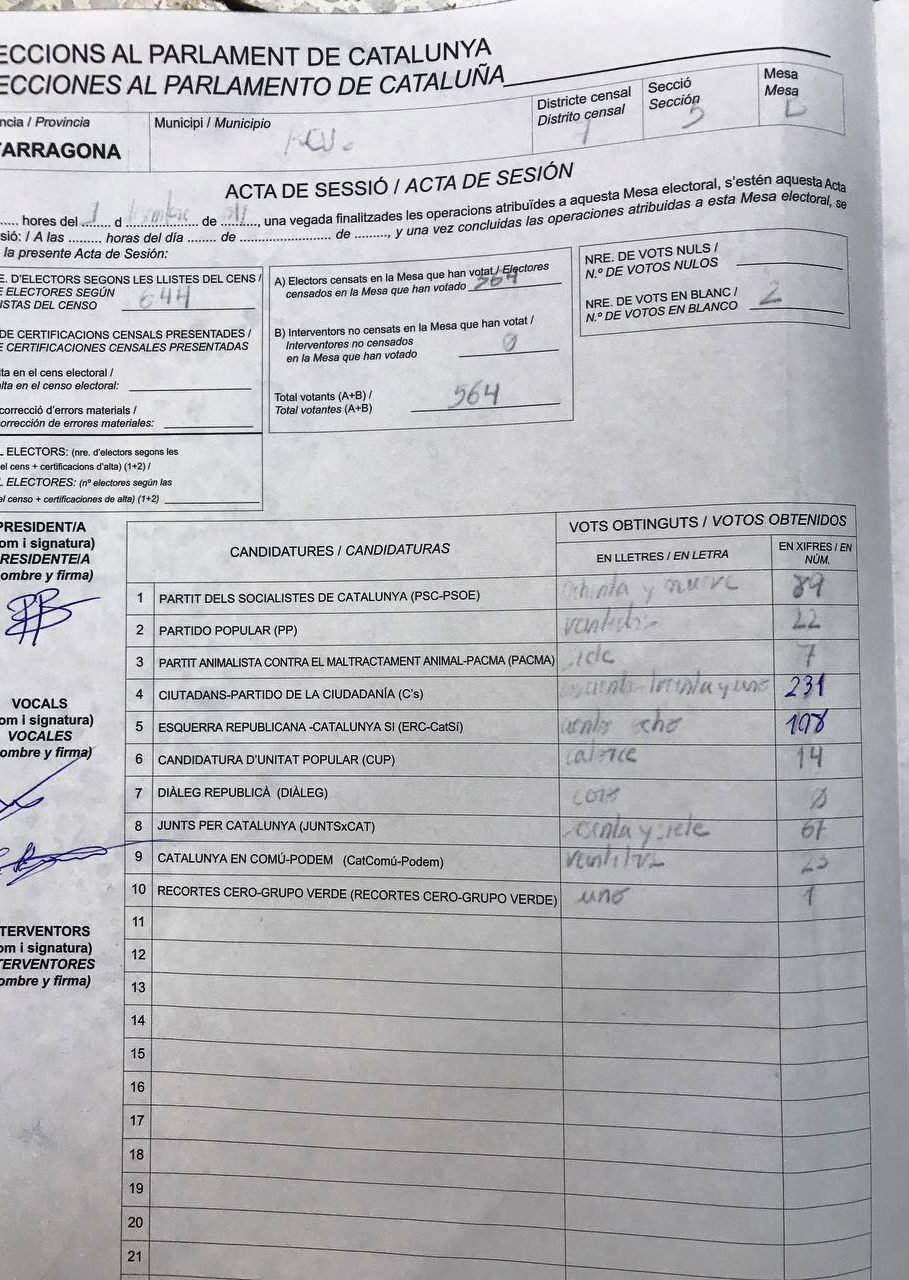 ECCIONS AL PARLAMENT DE CATALUNYA
ECCIONES AL PARLAMENTO DE CATALUÑA
ncia / Provincia
ARRAGONA
Municipi / Municipio
Districte censal
Distrito censal
1
Secció
Sección
Mesa
Mesa
ACTA DE SESSIÓ / ACTA DE SESIÓN
..... hores del ..... d ..... de ....., una vegada finalitzades les operacions atribuïdes a aquesta Mesa electoral, s'estén aquesta Acta
sió: / A las ........, horas del día ........ de .......................... de ........., y una vez concluidas las operaciones atribuidas a esta Mesa electoral, se
la presente Acta de Sesión:
E. D'ELECTORS SEGONS LES LLISTES DEL CENS /
E ELECTORES SEGÚN
ISTAS DEL CENSO 644
DE CERTIFICACIONS CENSALS PRESENTADES /
E CERTIFICACIONES CENSALES PRESENTADAS
lta en el cens electoral /
alta en el censo electoral:
correcció d'errors materials /
orrección de errores materiales:
L ELECTORS: (nre. d'electors segons les
el cens + certificacions d'alta) (1+2) /
L ELECTORES: (nº electores según las
el censo + certificaciones de alta) (1+2)
A) Electors censats en la Mesa que han votat / Electores
censados en la Mesa que han votado 564
B) Interventors no censats en la Mesa que han votat /
Interventores no censados
en la Mesa que han votado 0
Total votants (A+B) /
Total votantes (A+B) 564
NRE. DE VOTS NULS /
N.º DE VOTOS NULOS
NRE. DE VOTS EN BLANC /
N.º DE VOTOS EN BLANCO 2
PRESIDENT/A
om i signatura)
RESIDENTE/A
ombre y firma)
VOCALS
om i signatura)
VOCALES
ombre y firma)
TERVENTORS
om i signatura)
TERVENTORES
ombre y firma)
CANDIDATURES / CANDIDATURAS
VOTS OBTINGUTS / VOTOS OBTENIDOS
EN LLETRES / EN LETRA
EN XIFRES / EN
NÚM.
1 PARTIT DELS SOCIALISTES DE CATALUNYA (PSC-PSOE) ochenta y nueve 89
2 PARTIDO POPULAR (PP) 22
3 PARTIT ANIMALISTA CONTRA EL MALTRACTAMENT ANIMAL-PACMA (PACMA) siete 7
4 CIUTADANS-PARTIDO DE LA CIUDADANÍA (C's) 231
5 ESQUERRA REPUBLICANA -CATALUNYA SI (ERC-CatSí) ciento ocho 108
6 CANDIDATURA D'UNITAT POPULAR (CUP) catorce 14
7 DIÀLEG REPUBLICÀ (DIÀLEG) cero 0
8 JUNTS PER CATALUNYA (JUNTSxCAT) sesenta y siete 67
9 CATALUNYA EN COMÚ-PODEM (CatComú-Podem) 23
10 RECORTES CERO-GRUPO VERDE (RECORTES CERO-GRUPO VERDE) uno 1
11
12
13
14
15
16
17
18
19
20
21